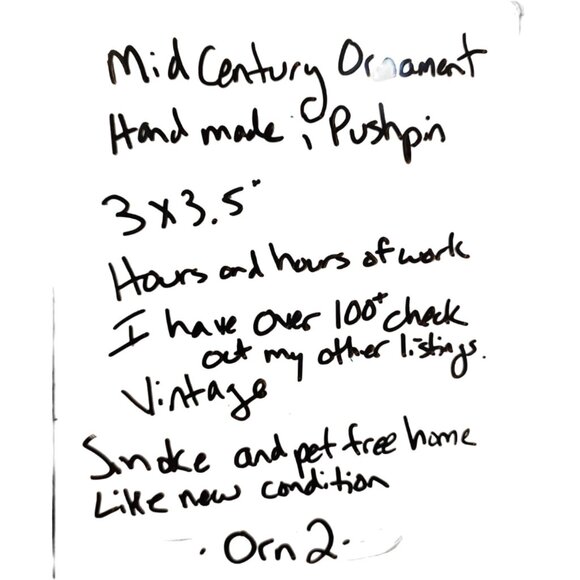 Mid Century Ornament
Hand made ; Pushpin
3 x 3.5"
Hours and hours of work
I have over 100+ check
out my other listings.
Vintage
Smoke and pet free home
Like new condition
· Orn 2 ·